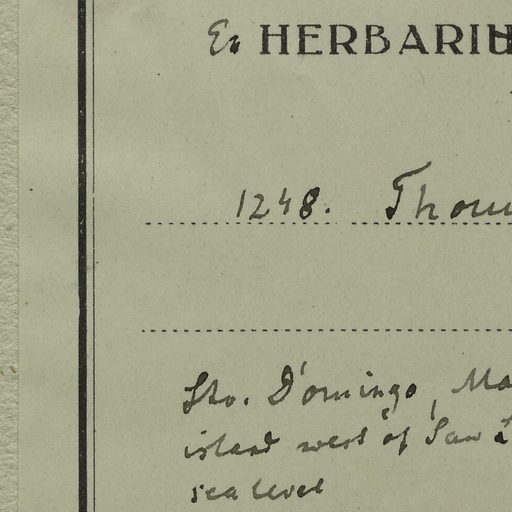 Ex HERBARIU
1248. Thom
Sto. Domingo, Ma
island west of San L
sea level